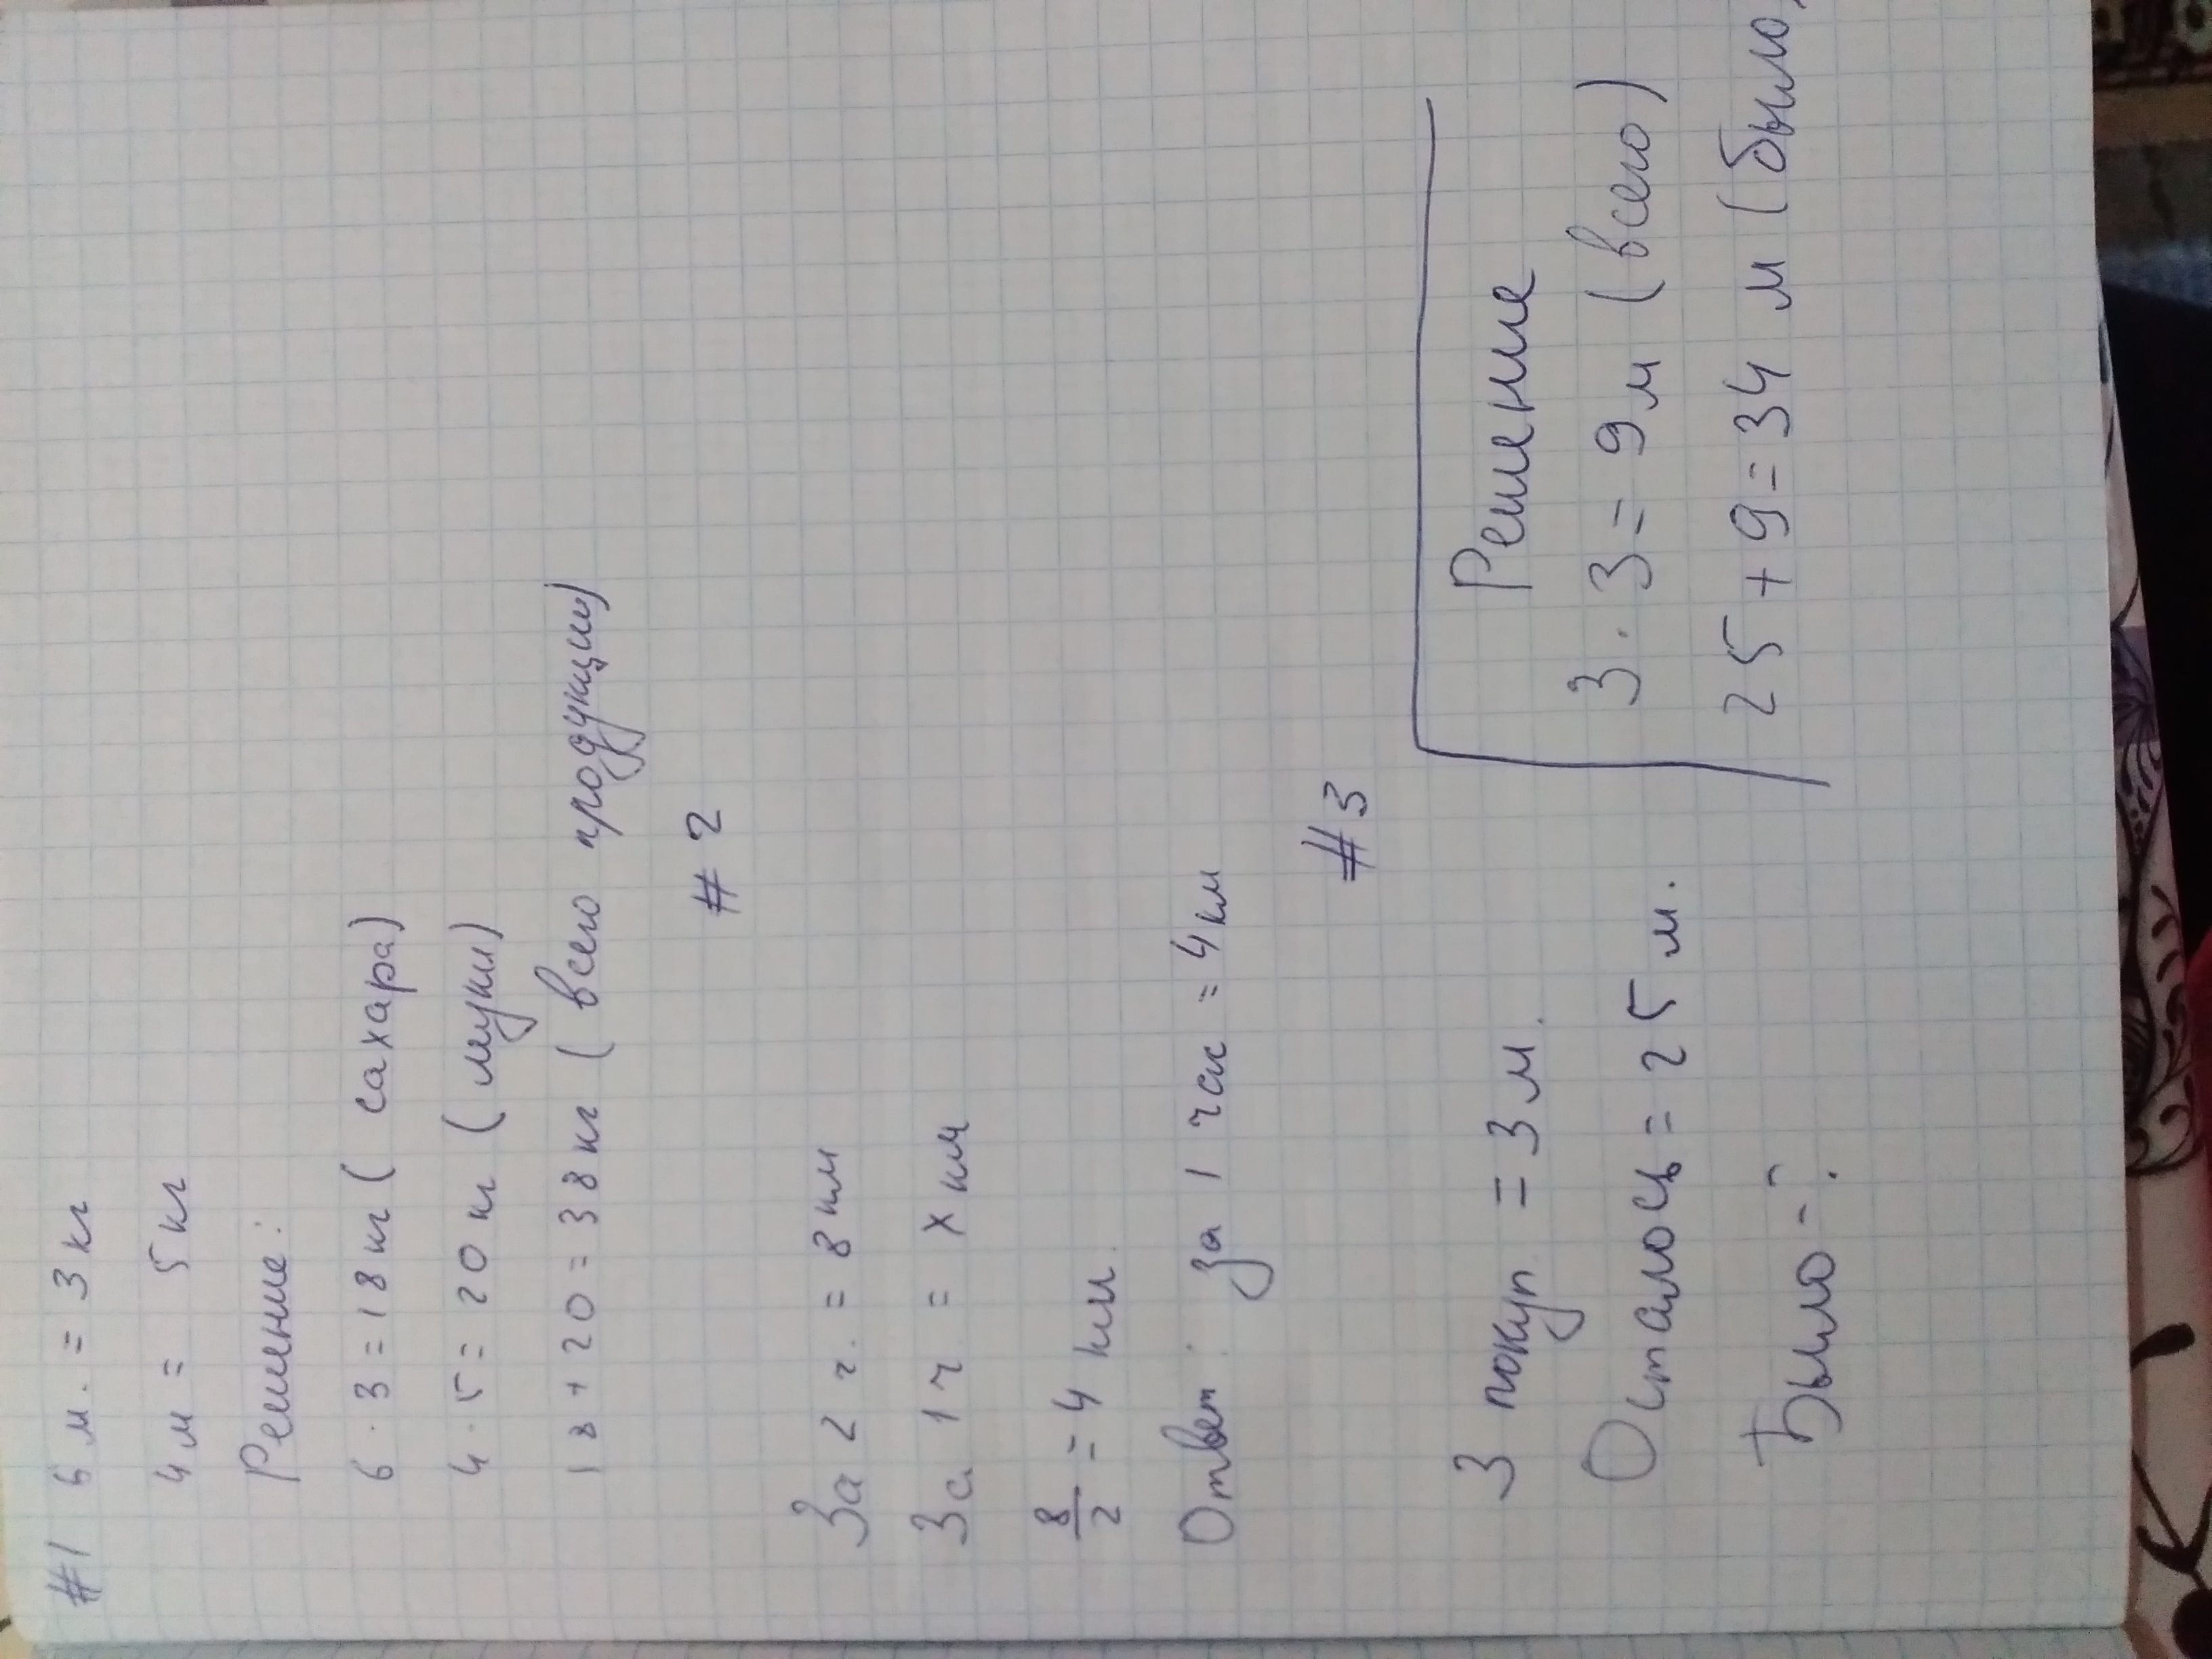 #1 6 м. = 3 кг
4 м = 5 кг
Решение:
6 · 3 = 18 кг ( сахара)
4 · 5 = 20 кг ( муки)
18 + 20 = 38 кг ( всего продукции)
# 2
За 2 ч. = 8 км
За 1 ч. = x км
8/2 = 4 км.
Ответ: за 1 час = 4 км
#3
3 покуп. = 3 м.
Осталось = 25 м.
Было - ?
Решение
3 · 3 = 9 м ( всего)
25 + 9 = 34 м ( было)